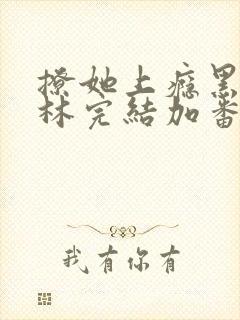 撩她上瘾黑
林完結加番
我有你有